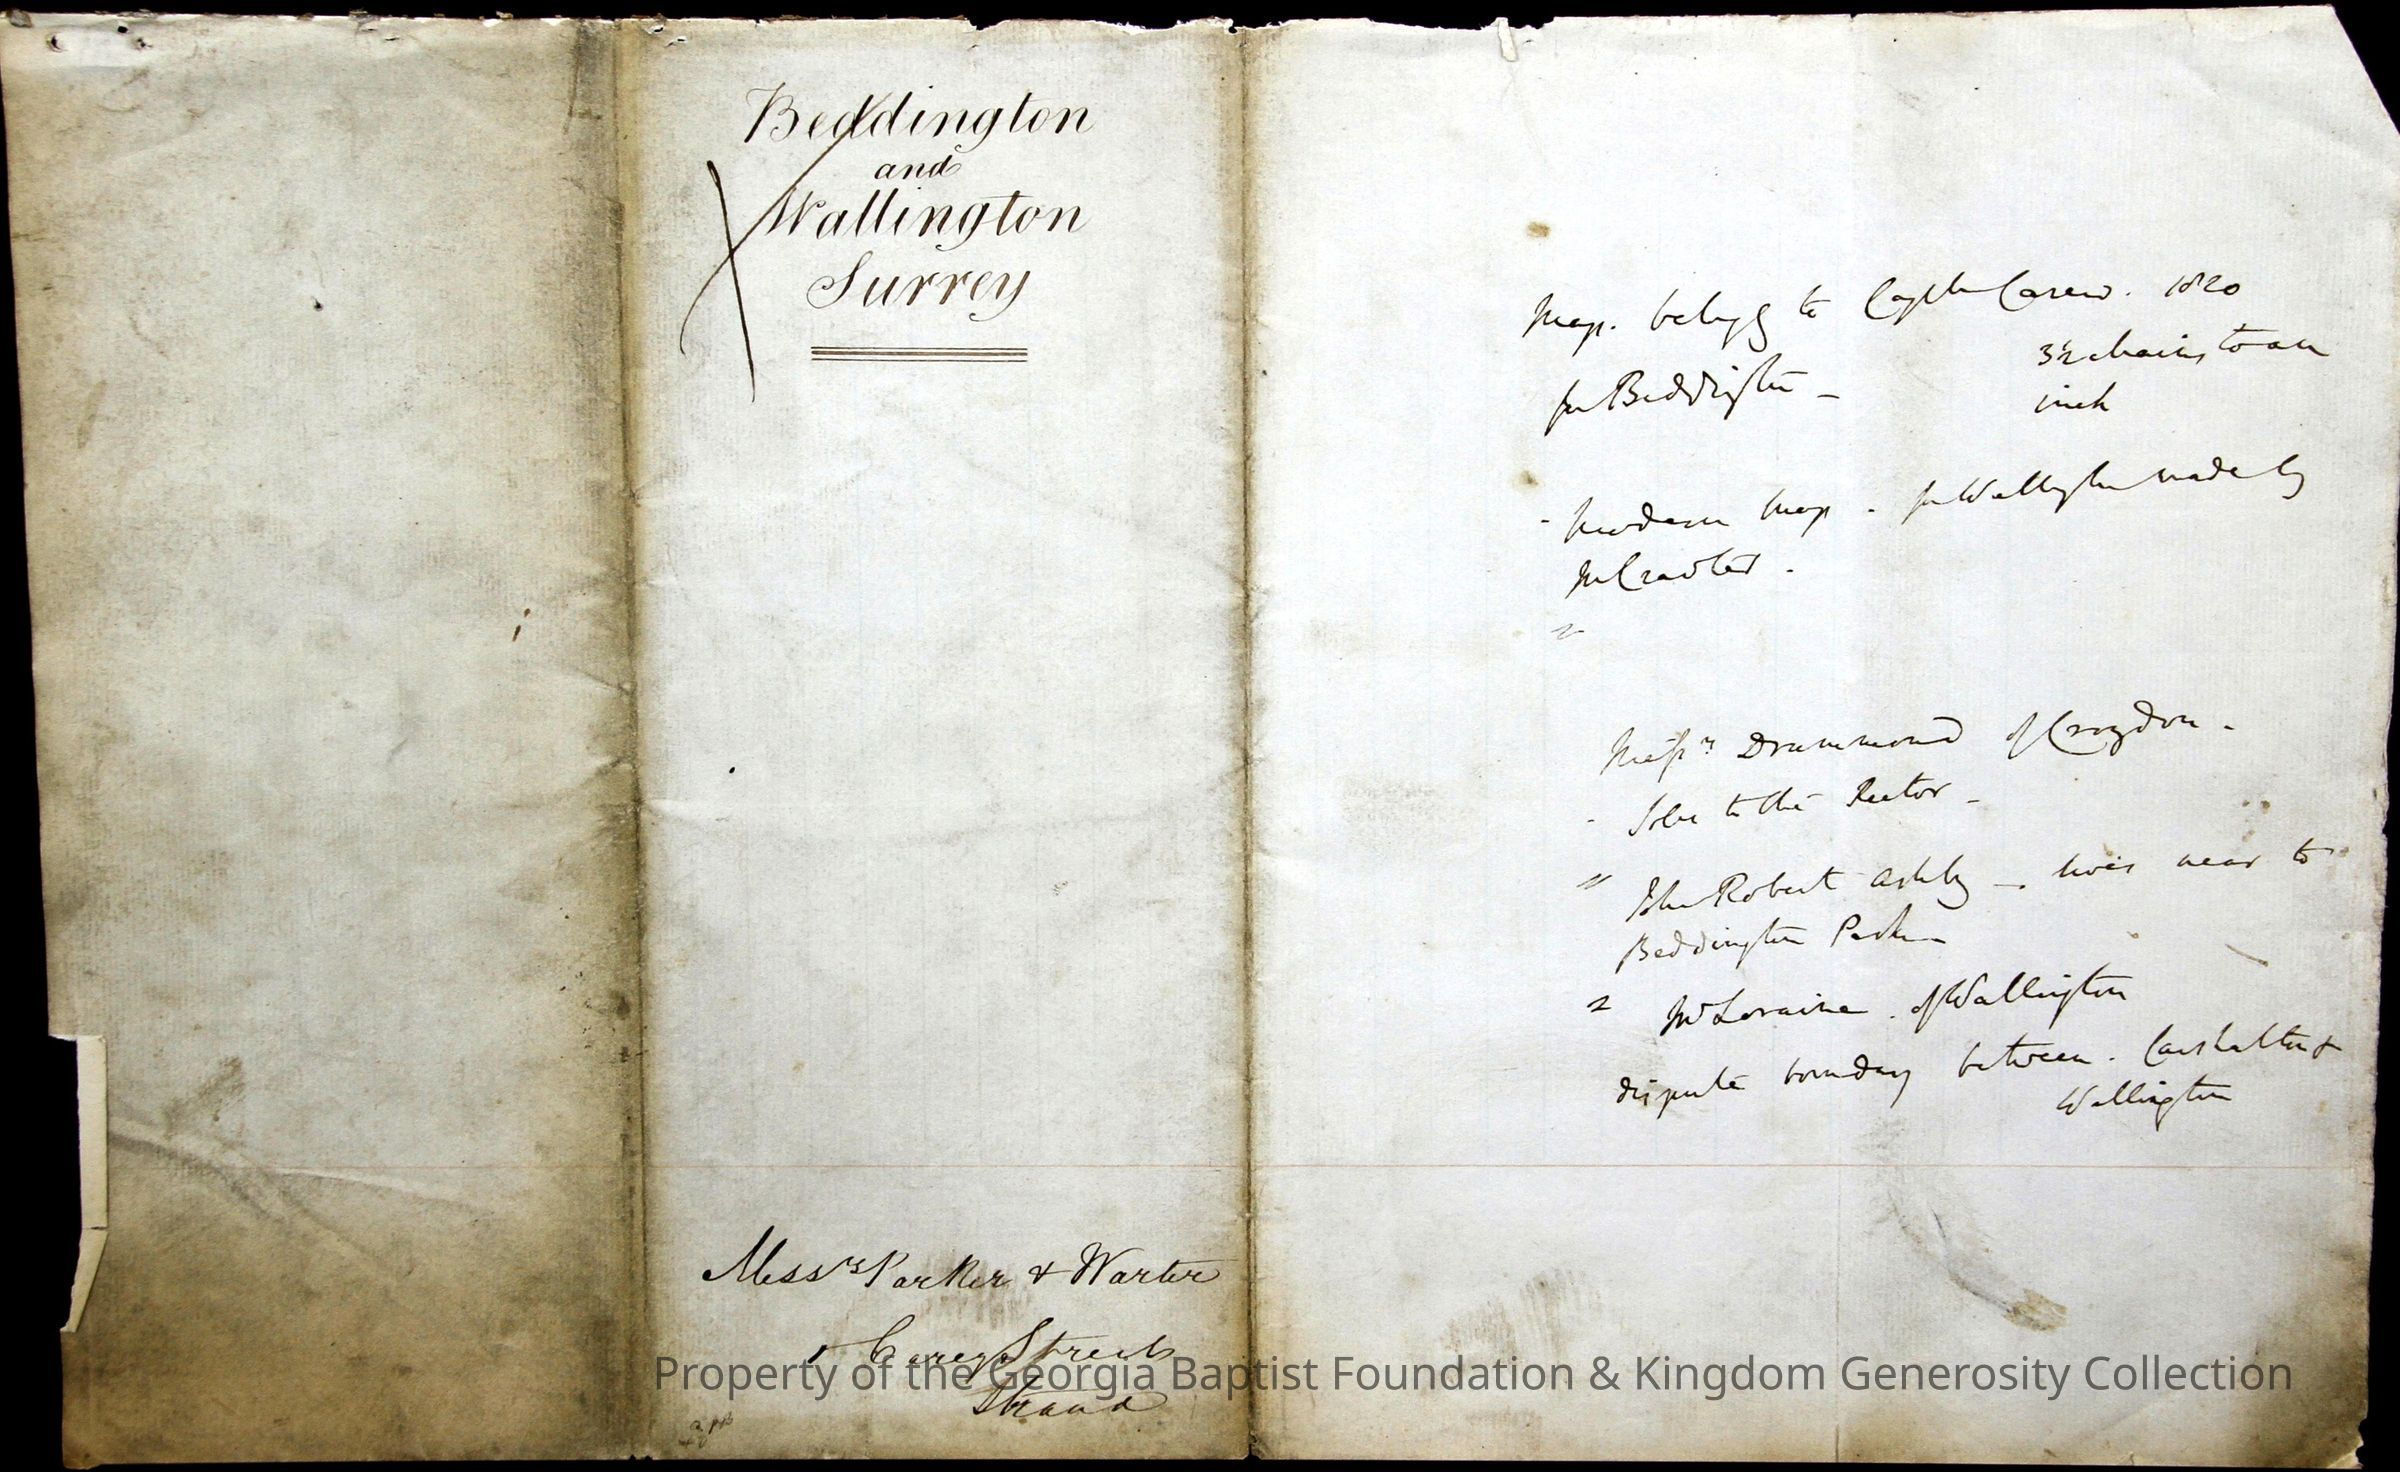 Beddington
and
Wallington
Surrey
Mess.rs Parker & Warter
1 Carey Street
Strand
Map. belongg to Captn Carew. 1820
for Beddington — 3½ chains to an
inch
Modern Map. for Wallington made by
Mr Crawter.
Messrs Drummond of Croydon.
Solrs to the Rector —
John Robert Ashby — lives near to
Beddington Park —
Mr Loraine. of Wallington
dispute boundary between. Carshalton &
Wallington
Property of the Georgia Baptist Foundation & Kingdom Generosity Collection